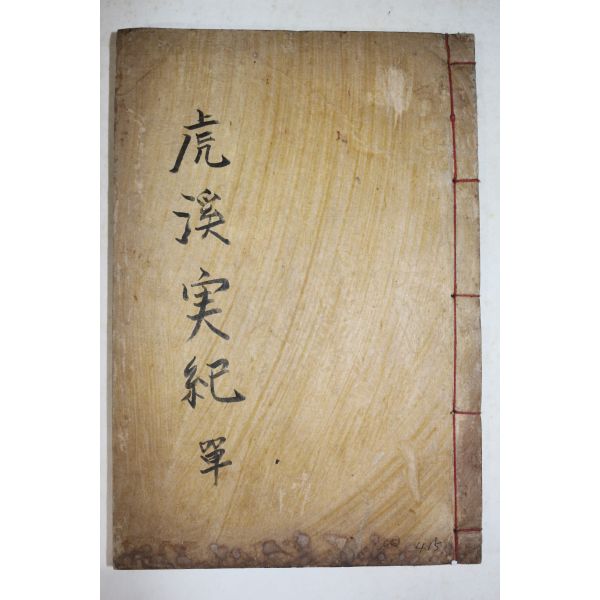 虎溪実紀 單
415